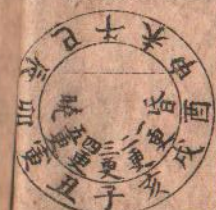 子丑寅卯辰巳午未申酉戌亥
昏一更二更三更四更五更